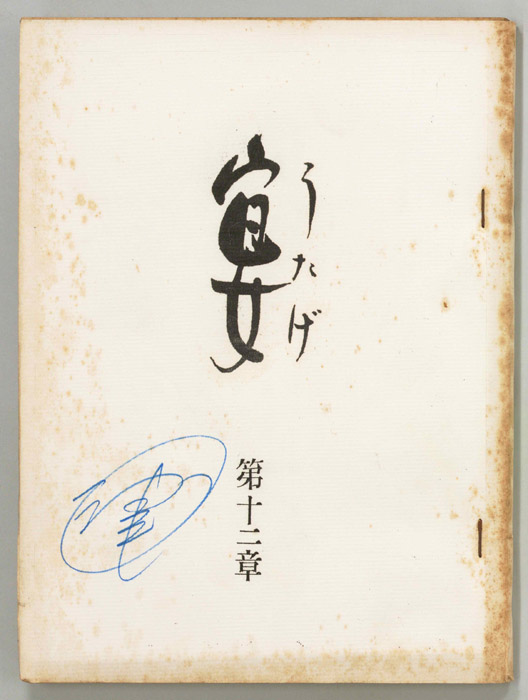 うたげ
宴
第十二章